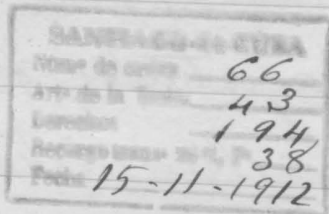 SANTIAGO DE CUBA
Núm. de orden 66
Art. de la 43
Derechos 194
38
Fecha 15-11-1912